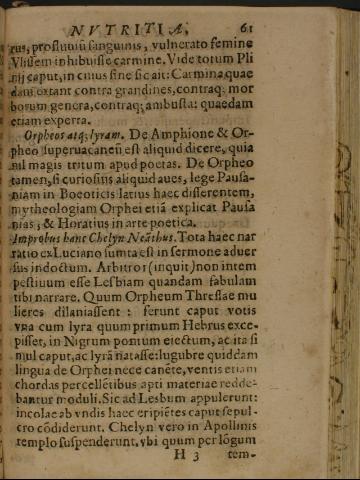 NVTRITIA, 61
rus, profluuiũ sanguinis, vulnerato femine
Vlissem inhibuisse carmine. Vide totum Pli
nij caput, in cuius fine sic ait: Carmina quae
dam extant contra grandines, contraq; mor
borum genera, contraq; ambusta: quaedam
etiam experta.
Orpheos atq; lyram. De Amphione & Or-
pheo superuacaneũ est aliquid dicere, quia
nil magis tritum apud poetas. De Orpheo
tamen, si curiosius aliquid aues, lege Pausa-
niam in Boeoticis latius haec disserentem,
mythologiam Orphei etiã explicat Pausa
nias, & Horatius in arte poetica.
Improbus hanc Chelyn Neãthus. Tota haec nar
ratio ex Luciano sumta est in sermone aduer
sus indoctum. Arbitror (inquit) non intem
pestiuum esse Lesbiam quandam fabulam
tibi narrare. Quum Orpheum Thressae mu
lieres dilaniassent: ferunt caput votis
vna cum lyra quum primum Hebrus exce-
pisset, in Nigrum pontum eiectum, ac ita si
mul caput, ac lyrã natasse: lugubre quiddam
lingua de Orphei nece canẽte, ventis etiam
chordas percellẽtibus apti materiae redde-
bantur moduli. Sic ad Lesbum appulerunt:
incolae ab vndis haec eripiẽtes caput sepul-
cro cõdiderunt. Chelyn vero in Apollinis
templo suspenderunt, vbi quum per lõgum
H 3 tem-